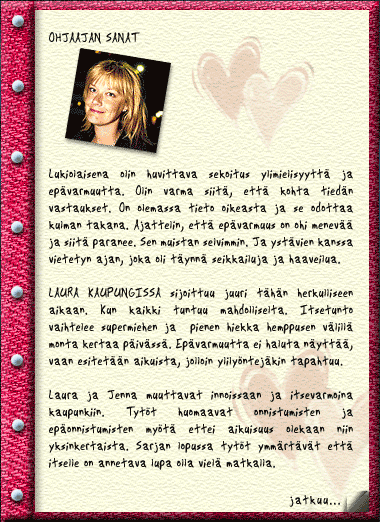 OHJAAJAN SANAT
Lukiolaisena olin huvittava sekoitus ylimielisyyttä ja
epävarmuutta. Olin varma siitä, että kohta tiedän
vastaukset. On olemassa tieto oikeasta ja se odottaa
kulman takana. Ajattelin, että epävarmuus on ohi menevää
ja siitä paranee. Sen muistan selvimmin. Ja ystävien kanssa
vietetyn ajan, joka oli täynnä seikkailuja ja haaveilua.
LAURA KAUPUNGISSA sijoittuu juuri tähän herkulliseen
aikaan. Kun kaikki tuntuu mahdolliselta. Itsetunto
vaihtelee supermiehen ja pienen hiekka hemppusen välillä
monta kertaa päivässä. Epävarmuutta ei haluta näyttää,
vaan esitetään aikuista, jolloin ylilyöntejäkin tapahtuu.
Laura ja Jenna muuttavat innoissaan ja itsevarmoina
kaupunkiin. Tytöt huomaavat onnistumisten ja
epäonnistumisten myötä ettei aikuisuus olekaan niin
yksinkertaista. Sarjan lopussa tytöt ymmärtävät että
itselle on annettava lupa olla vielä matkalla.
jatkuu...